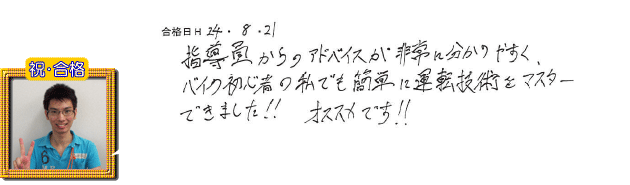 合格日 H 24・8・21
指導員からのアドバイスが非常に分かりやすく、
バイク初心者の私でも簡単に運転技術をマスター
できました!! オススメです!!
祝・合格